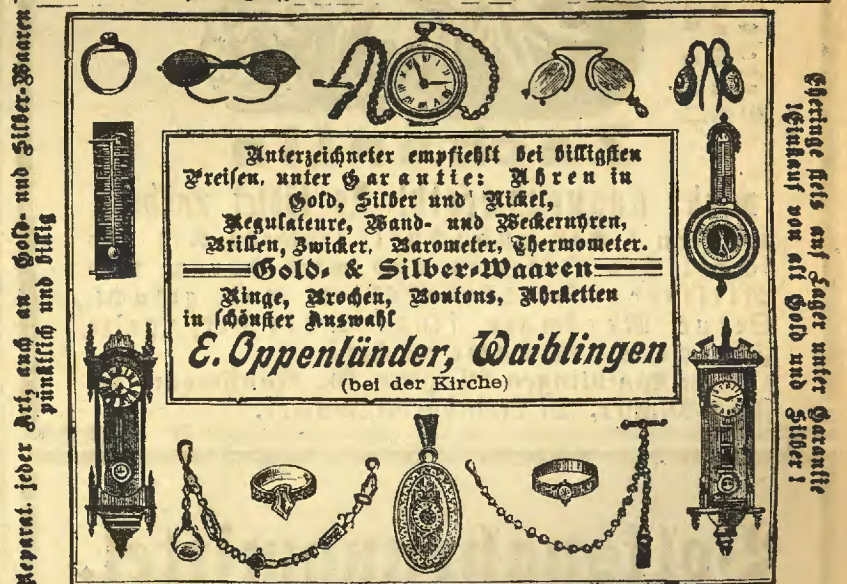 Reparat. jeder Art, auch an Gold- und Silber-Waaren
pünktlich und billig
Unterzeichneter empfiehlt bei billigsten
Preisen, unter Garantie: Uhren in
Gold, Silber und Nickel,
Regulateure, Wand- und Weckeruhren,
Brillen, Zwicker, Barometer, Thermometer.
Gold- & Silber-Waaren
Ringe, Brochen, Boutons, Uhrketten
in schönster Auswahl
E. Oppenländer, Waiblingen
(bei der Kirche)
Eheringe stets auf Lager unter Garantie
Einkauf von alt Gold und Silber!